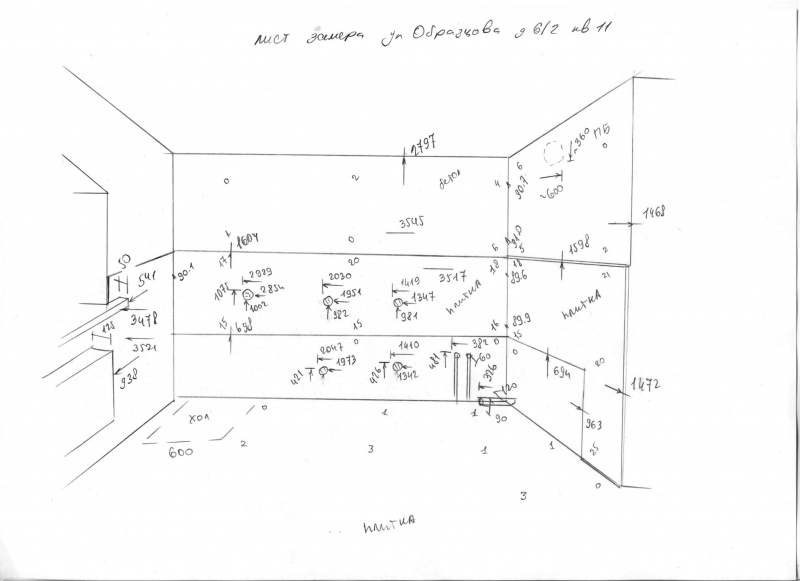 лист замера ул Образцова д 6/2 кв 11
2797
~360
ПБ
0
6
0
2
бетон
4
90.7
~600
1468
3545
1604
17
0
20
6
5
1598
2
50
541
90.1
2929
2030
1419
3517
18
18
89.6
21
1075
2854
1951
1347
плитка
плитка
1002
982
981
3478
125
15
698
15
16
89.9
15
3521
0
0
382
2047
1410
481
60
694
20
938
421
1973
426
1342
326
120
1472
963
хол
0
1
1
90
600
2
3
1
1
25
3
0
плитка